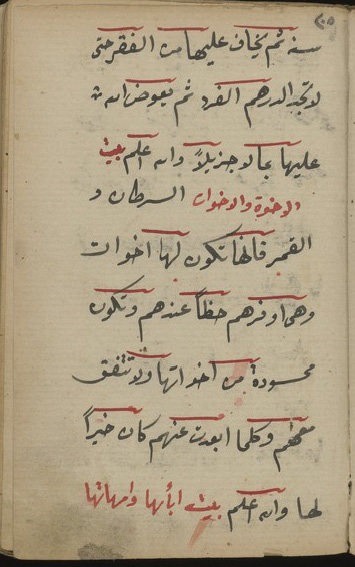 ٢٠٥
سنه ثم يخاف عليها من الفقر حتى
لا تجد الدرهم الفرد ثم يعوض الله
عليها بمالا جزيلاً والله اعلم بيت
الاخوة والاخوات السرطان و
القمر فانها تكون لها اخوات
وهى اوفرهم حظاً عندهم وتكون
محسودة من اخواتها ولا تتفق
معهم وكلما ابعدت عنهم كان خيراً
لها والله اعلم بيت ابائها وامهاتها